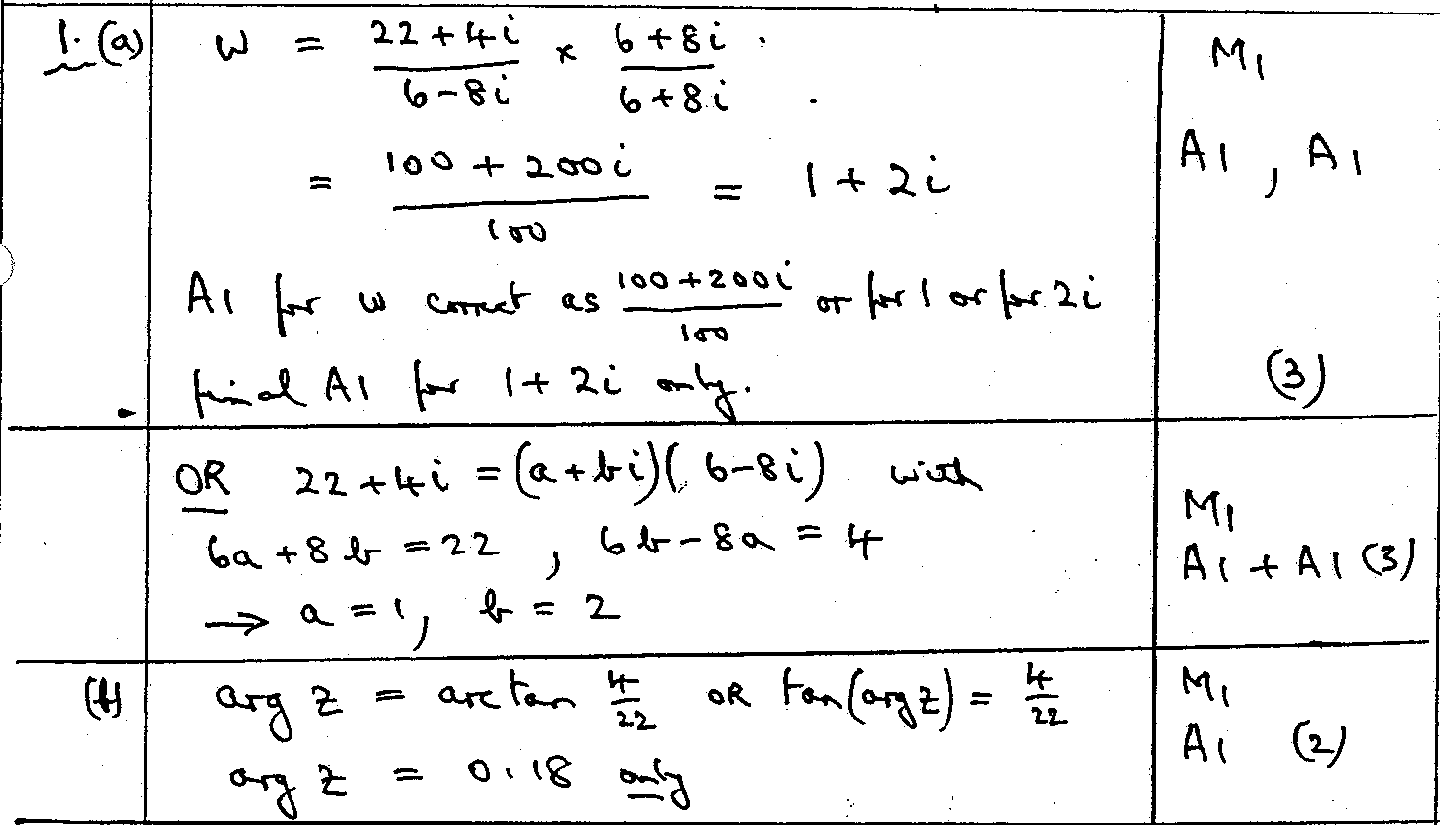 1. (a) w = (22+4i)/(6-8i) × (6+8i)/(6+8i) M1
= (100+200i)/100 = 1+2i A1, A1
A1 for w correct as (100+200i)/100 or for 1 or for 2i
final A1 for 1+2i only. (3)
OR 22+4i = (a+bi)(6-8i) with M1
6a+8b=22, 6b-8a=4 A1+A1 (3)
→ a=1, b=2
(b) arg z = arctan 4/22 OR tan(arg z) = 4/22 M1
arg z = 0.18 only A1 (2)